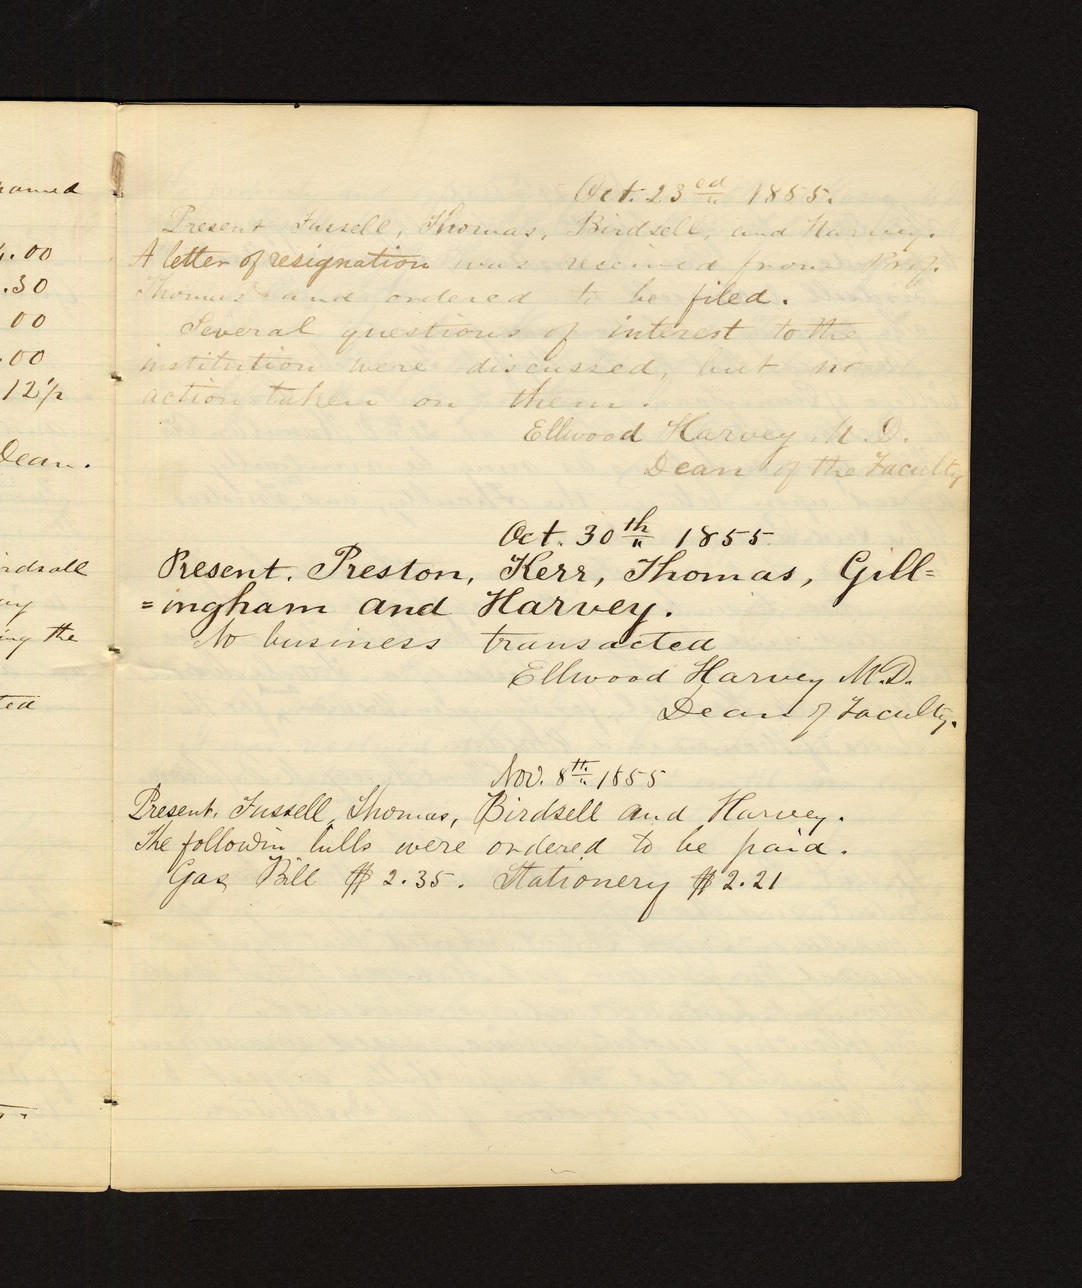 named
.00
.30
00
.00
12 1/2
Dean.
irdsall
ing the
ted
Oct. 23ed 1855.
Present Fussell, Thomas, Birdsell, and Harvey.
A letter of resignation was received from Prof.
Thomas and ordered to be filed.
Several questions of interest to the
institution were discussed, but no
action taken on them.
Ellwood Harvey M.D.
Dean of the Faculty
Oct. 30th 1855
Present. Preston, Kerr, Thomas, Gill=
=ingham and Harvey.
No business transacted
Ellwood Harvey M.D.
Dean of Faculty.
Nov. 8th 1855
Present. Fussell, Thomas, Birdsell and Harvey.
The followin bills were ordered to be paid.
Gas Bill $ 2.35. Stationery $ 2.21